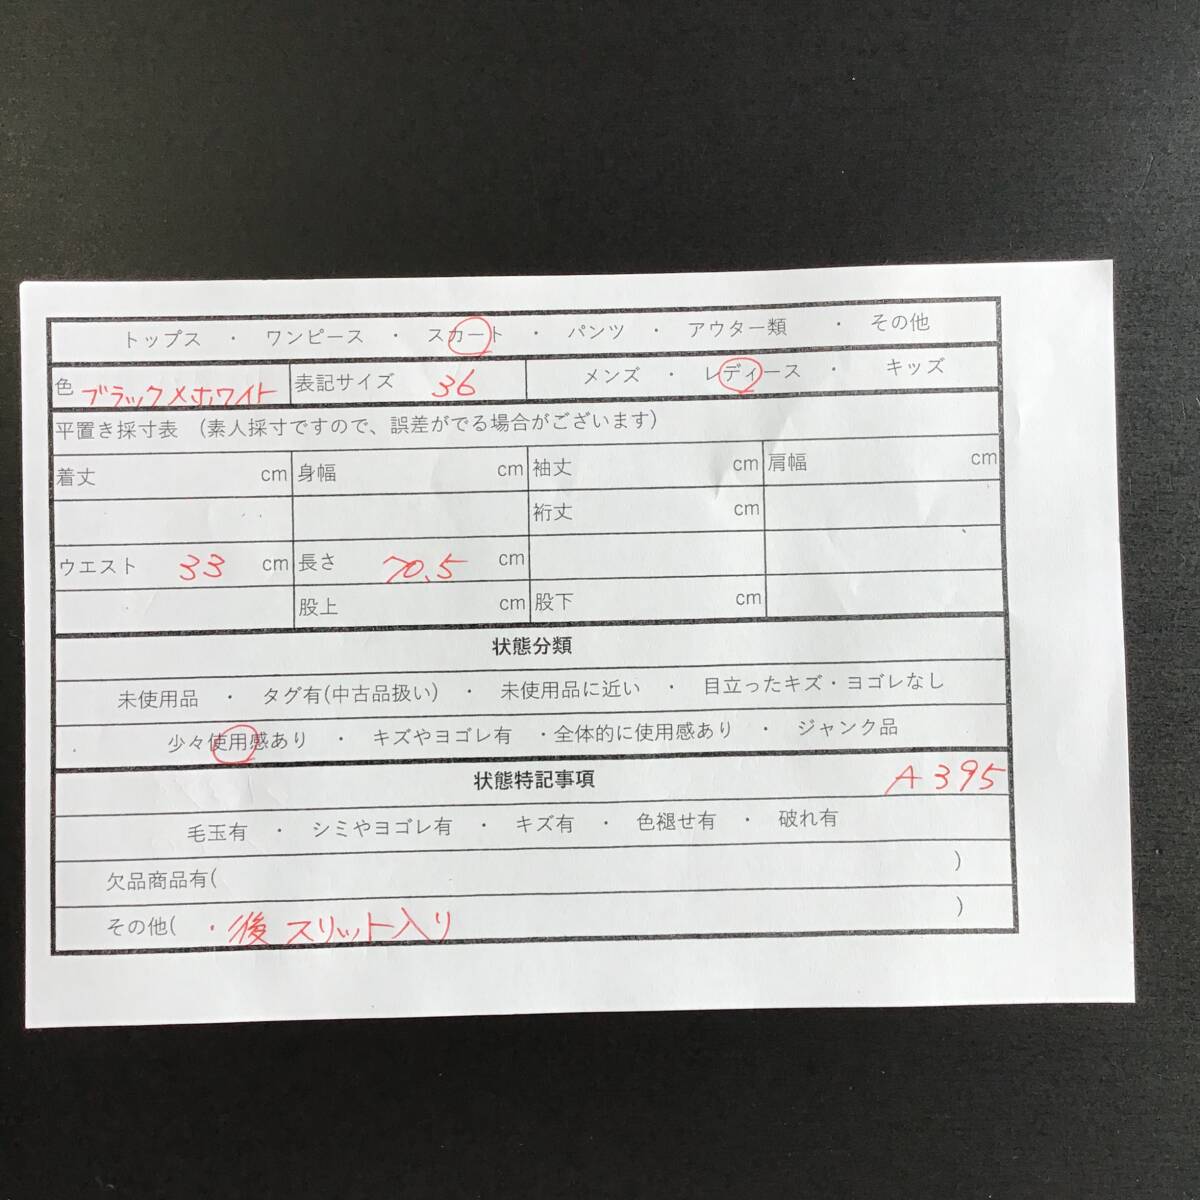 トップス ・ ワンピース ・ スカート ・ パンツ ・ アウター類 ・ その他
色 ブラック×ホワイト 表記サイズ 36 メンズ ・ レディース ・ キッズ
平置き採寸表 (素人採寸ですので、誤差がでる場合がございます)
着丈 cm 身幅 cm 袖丈 cm 肩幅 cm
裄丈 cm
ウエスト 33 cm 長さ 70.5 cm
股上 cm 股下 cm
状態分類
未使用品 ・ タグ有(中古品扱い) ・ 未使用品に近い ・ 目立ったキズ・ヨゴレなし
少々使用感あり ・ キズやヨゴレ有 ・全体的に使用感あり ・ ジャンク品
状態特記事項 A395
毛玉有 ・ シミやヨゴレ有 ・ キズ有 ・ 色褪せ有 ・ 破れ有
欠品商品有( )
その他( ・後スリット入り )